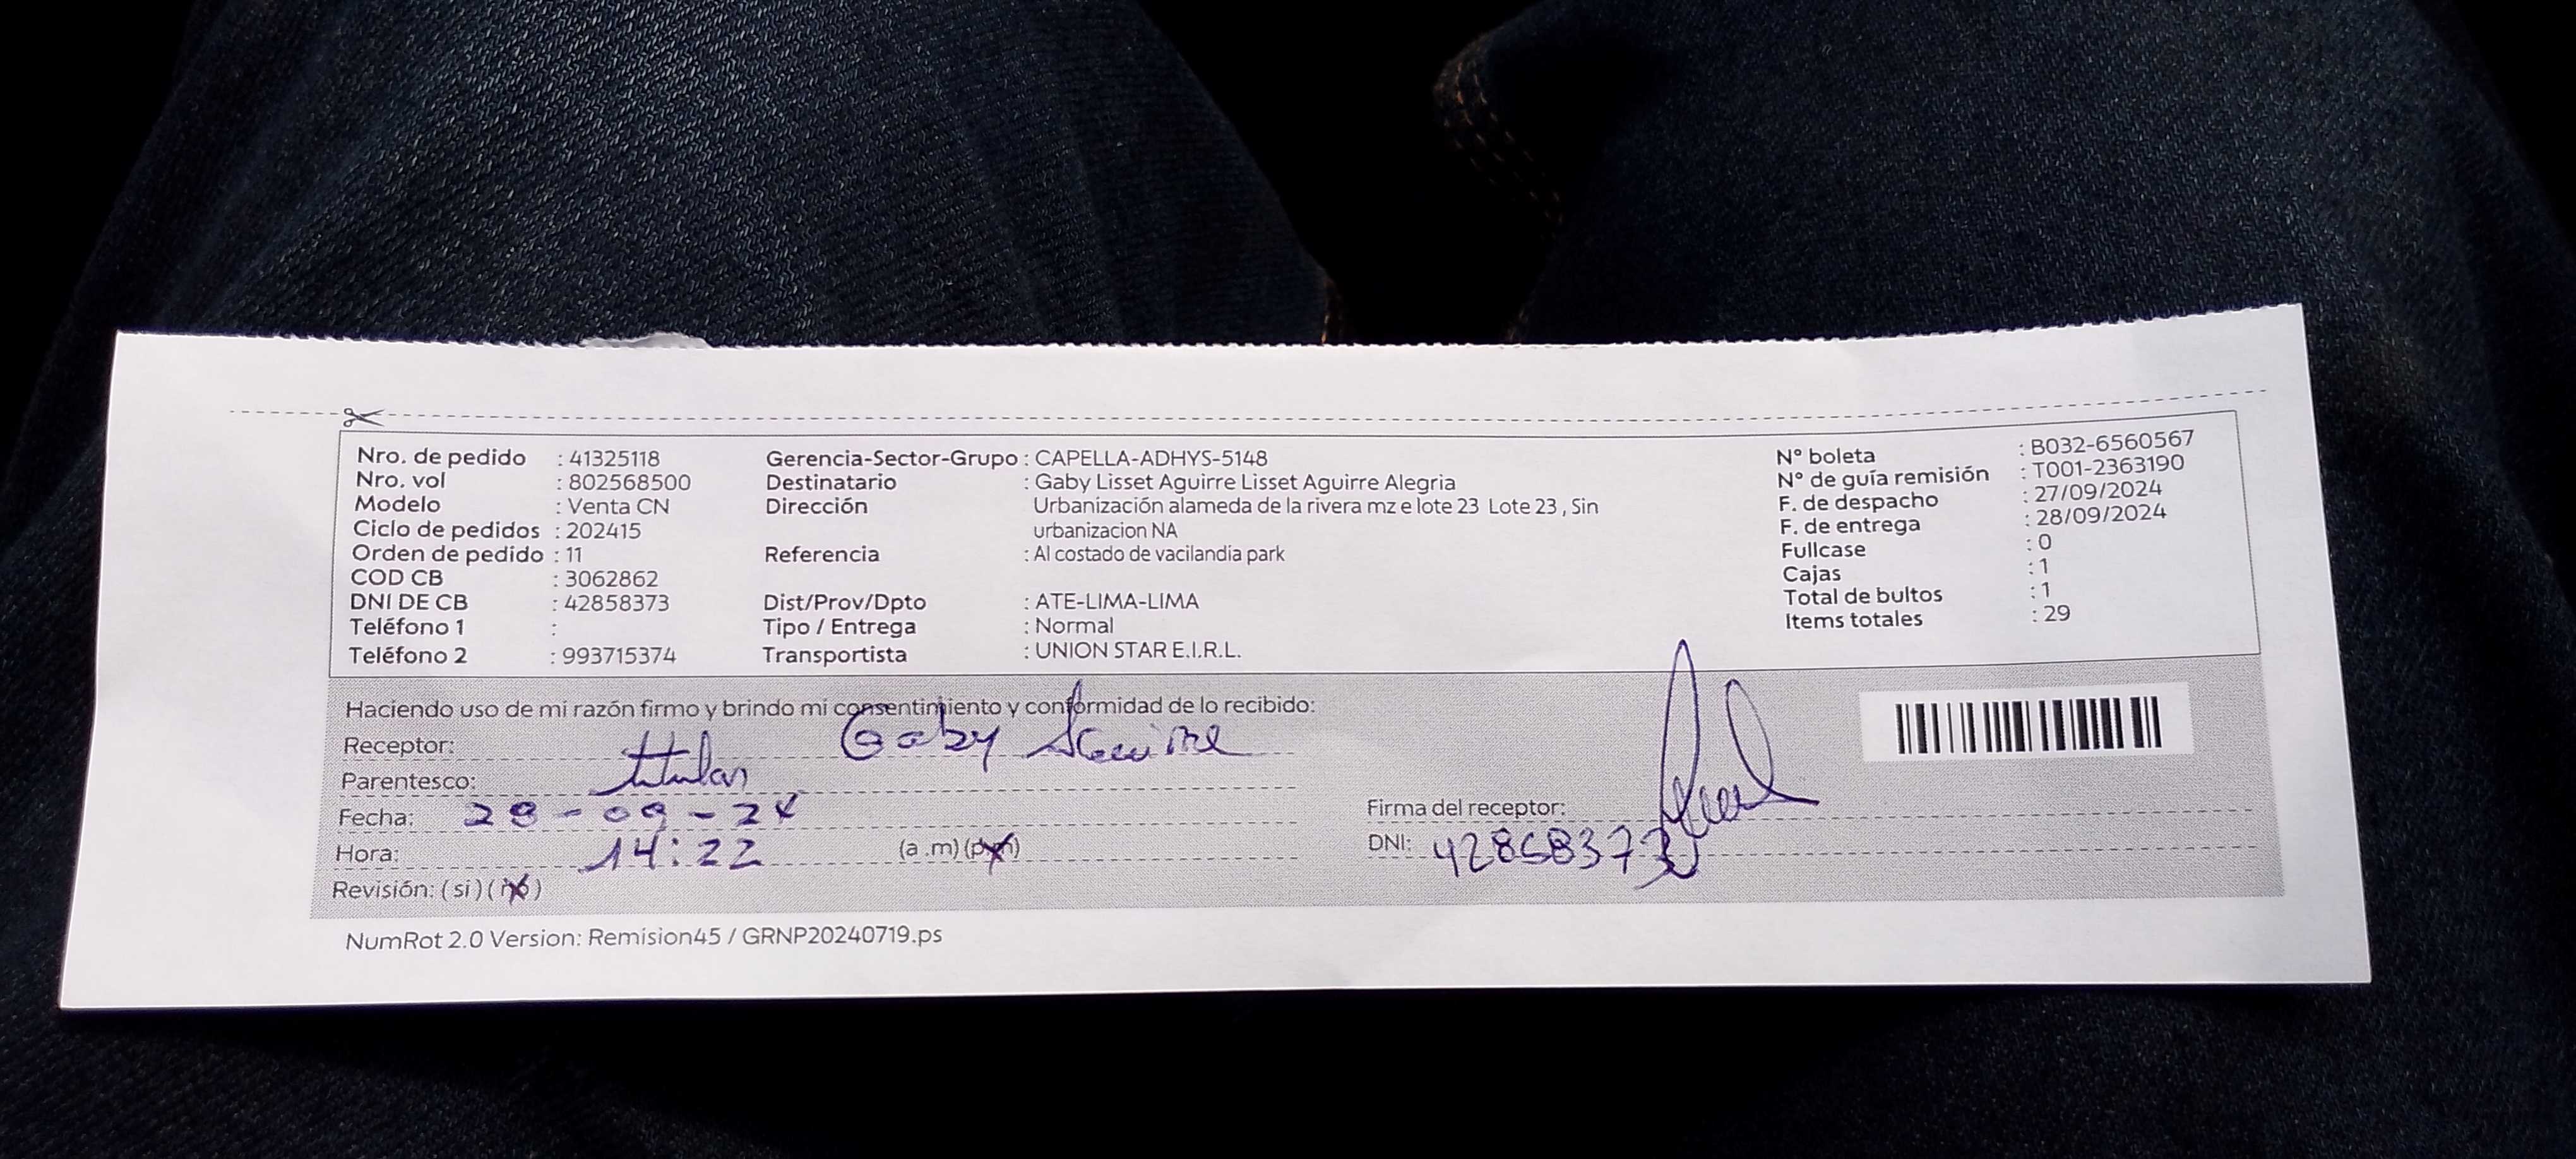 Nro. de pedido : 41325118
Nro. vol : 802568500
Modelo : Venta CN
Ciclo de pedidos : 202415
Orden de pedido : 11
COD CB : 3062862
DNI DE CB : 42858373
Teléfono 1 :
Teléfono 2 : 993715374
Gerencia-Sector-Grupo : CAPELLA-ADHYS-5148
Destinatario : Gaby Lisset Aguirre Lisset Aguirre Alegria
Dirección Urbanización alameda de la rivera mz e lote 23 Lote 23 , Sin
urbanizacion NA
Referencia : Al costado de vacilandia park
Dist/Prov/Dpto : ATE-LIMA-LIMA
Tipo / Entrega : Normal
Transportista : UNION STAR E.I.R.L.
N° boleta : B032-6560567
N° de guía remisión : T001-2363190
F. de despacho : 27/09/2024
F. de entrega : 28/09/2024
Fullcase : 0
Cajas : 1
Total de bultos : 1
Items totales : 29
Haciendo uso de mi razón firmo y brindo mi consentimiento y conformidad de lo recibido:
Receptor: Gaby Aguirre
Parentesco: titular
Fecha: 28-09-24
Hora: 14:22 (a .m) (p.m)
Revisión: (si) (no)
Firma del receptor:
DNI: 42858373
NumRot 2.0 Version: Remision45 / GRNP20240719.ps